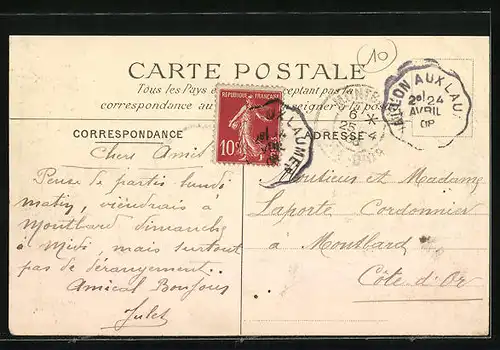 10
CARTE POSTALE
Tous les Pays
correspondance au
CORRESPONDANCE
ADRESSE
REPUBLIQUE FRANÇAISE
10c
ON AUX LAU
24
AVRIL
08
25 4
Chers Amis
Pense de partir lundi
matin, viendrais à
Montbard dimanche
à Midi, mais surtout
pas de dérangement.
Amical Bonjour
Julet
Monsieur et Madame
Laporte Cordonnier
à Montbard
Côte d'Or